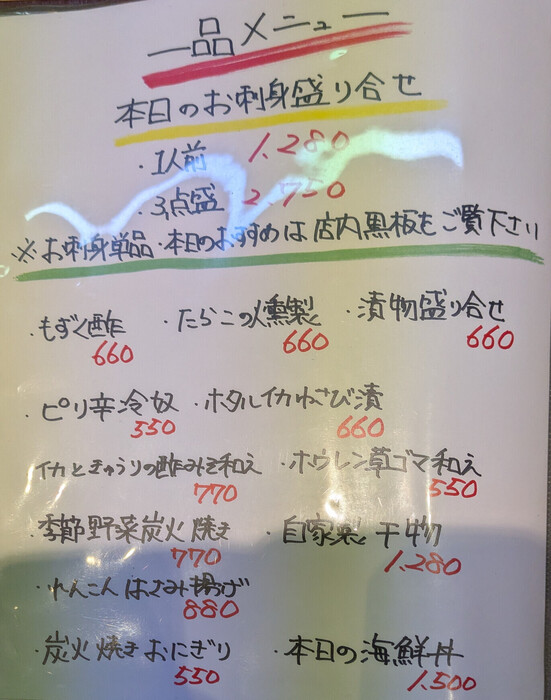 一品メニュー
本日のお刺身盛り合せ
・1人前 1,280
・3点盛 2,750
※お刺身単品・本日のおすすめは店内黒板をご覧下さい
・もずく酢 ・たらこの燻製 ・漬物盛り合せ
660 660 660
・ピリ辛冷奴 ・ホタルイカわさび漬
550 660
イカときゅうりの酢みそ和え ・ホウレン草ゴマ和え
770 550
・季節野菜炭火焼き ・自家製干物
770 1,280
・れんこんはさみ揚げ
880
・炭火焼きおにぎり ・本日の海鮮丼
550 1,500